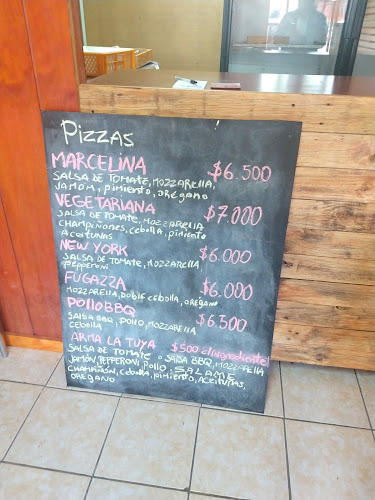 Pizzas
MARCELINA $6.500
SALSA DE TOMATE, MOZZARELLA,
JAMOM, pimiento, orégano
VEGETARIANA $7.000
SALSA DE TOMATE, MOZZARELLA
CHAMPIÑONES, CEBOLLA, pimiento
Aceitunas
NEW YORK $6.000
SALSA DE TOMATE, MOZZARELLA,
pepperoni
FUGAZZA $6.000
MOZZARELLA, DOBLE CEBOLLA, OREGANO
POLLO BBQ $6.500
SALSA BBQ, POLLO, MOZZARELLA
Cebolla
ARMA LA TUYA $500 c/Ingrediente!
SALSA DE TOMATE o SALSA BBQ, MOZZARELLA
JAMÓN, PEPPERONI, POLLO, SALAME
CHAMPIÑON, CEBOLLA, pimiento, ACEITUNAS,
OREGANO